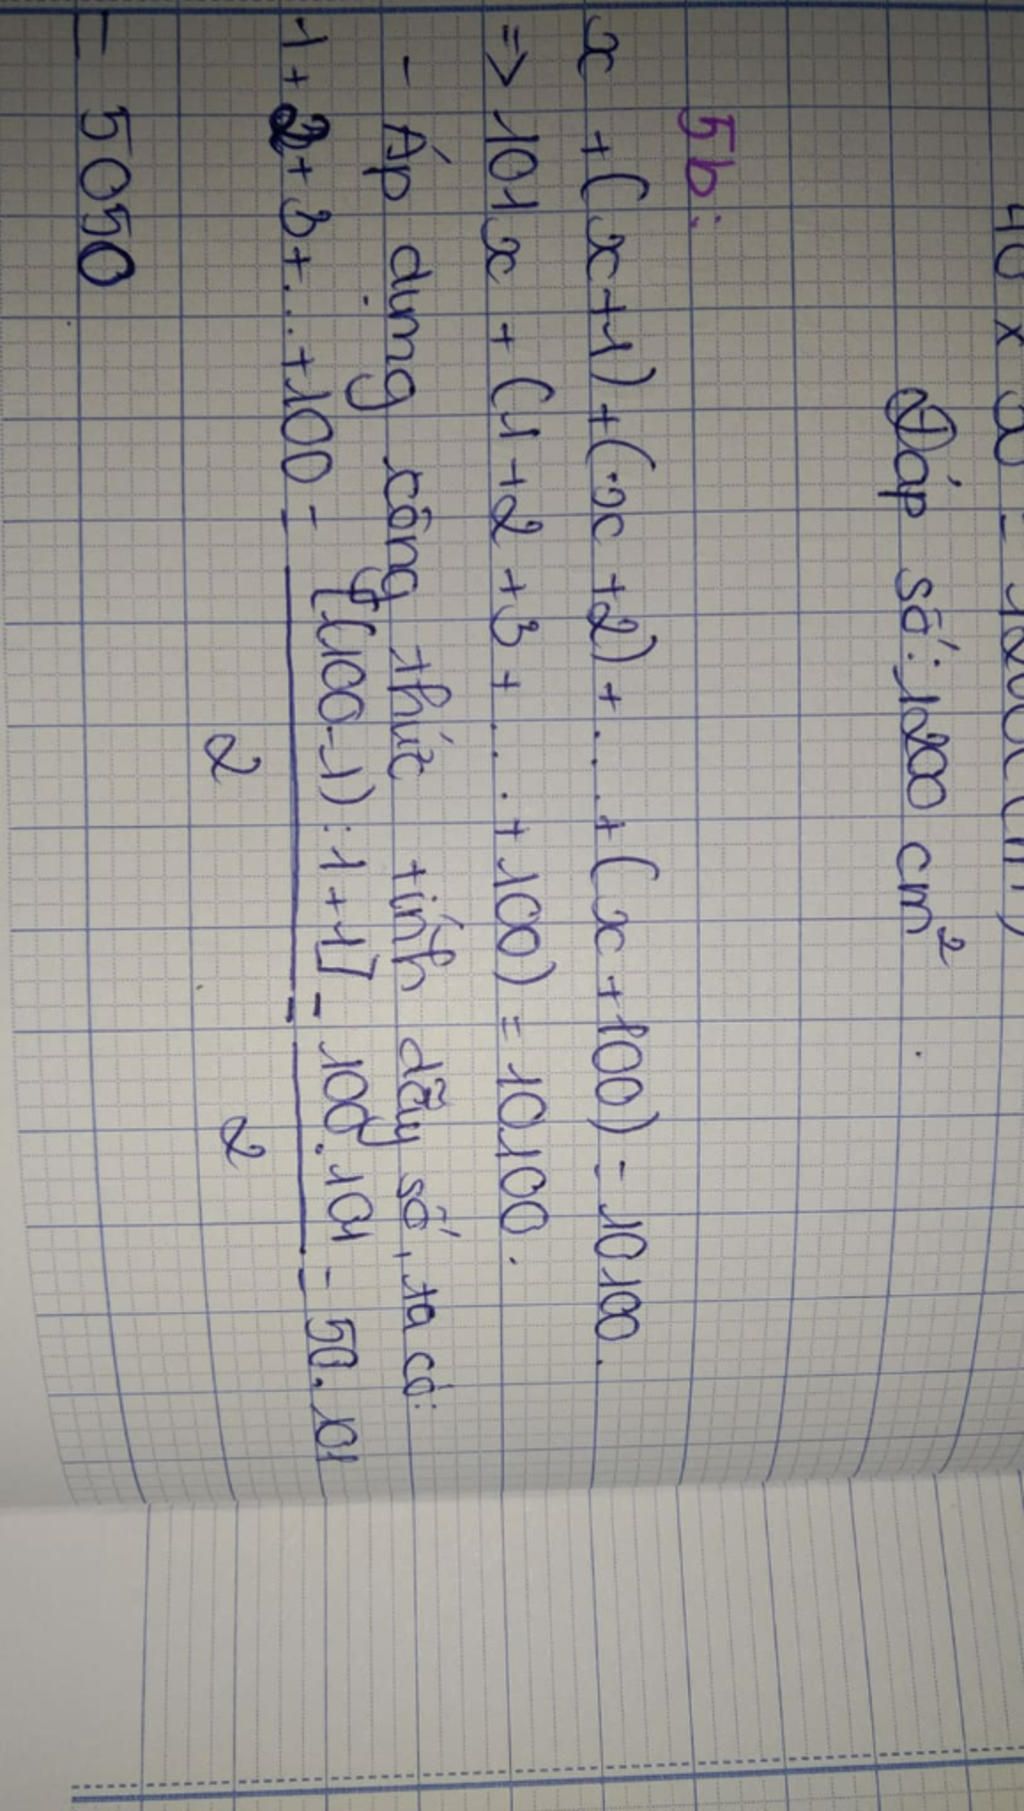 40 x 30 = 1200 (
Đáp số: 1200 cm²
5b:
x + (x+1) + (x+2) + ... + (x+100) = 10100.
=> 101x + (1+2+3+ ... +100) = 10100.
- Áp dụng công thức tính dãy số, ta có:
1+2+3+...+100 = [(100-1):1+1] / 2 = 100.101 / 2 = 50.101
= 5050